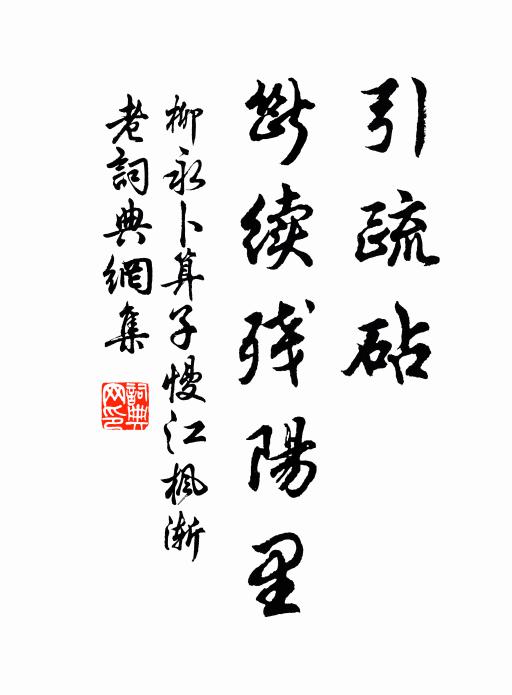 引疏砧
断续残陽里
柳永卜算子慢江楓漸
老詞典網集
詞典
网印